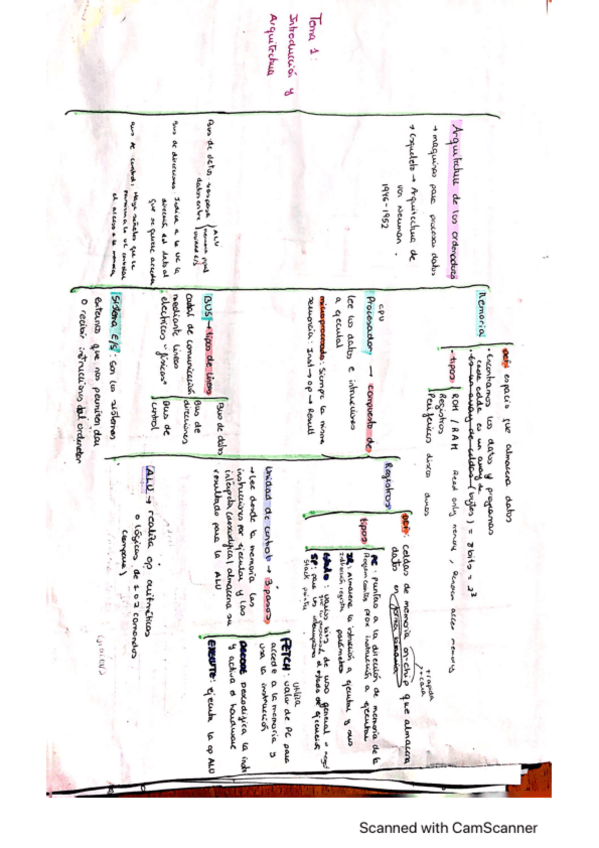 Tema 1:
Introducción y
Arquitectura
Arquitectura de los ordenadores
→ maquinas para procesar datos
→ Esqueleto → Arquitectura de
Von Neuman.
1946-1952
Memoria
def: espacio que almacena datos
· Encontramos los datos y programas
cada celda es un array de
(bytes) = 8 bits = 2³
· tipos
ROM / RAM Read only memory, Random acces memory
Registros
Perifericos discos duros
CPU
Procesador → compuesto de
Lee los datos e instrucciones
a ejecutar
microprocesador: Siempre la misma
secuencia: Inst → op → Result
Registros
def: celdas de memoria on-chip que almacena
datos
+ rapida
+ cara
tipos
PC: puntero a la dirección de memoria de la
instrucción a ejecutar
IR: Almacena la instrucción a ejecutar y sus
parámetros
Estado: varios bits de uso general
SP:
stack pointer
Unidad de control → 3 pasos
→ Lee desde la memoria las
instrucciones por ejecutar y las
interpreta almacena su
resultado para la ALU
FETCH: utiliza valor de PC para
accede a la memoria y
lee la instrucción
DECODE: Descodifica la instr
y activa el hardware
EXECUTE: ejecuta la op ALU
ALU → realiza op aritméticas
o lógicas de 1 o 2 comandos
BUS → tipos de buses
canal de comunicación
mediante lineas
electricas - físicas
Bus de datos
Bus de
direcciones
Bus de
control
Bus de datos
Bus de direcciones: Indica a la
dirección del dato al
que se quiere acceder
Bus de control:
el acceso a la memoria
Sistema E/S: son los sistemas
externos que nos permiten dar
o recibir instrucciones del ordenador
Scanned with CamScanner